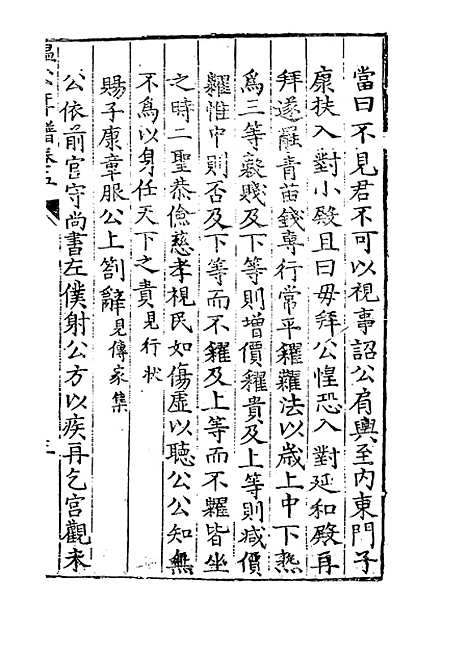 當曰不見君不可以視事詔公肩輿至內東門子
康扶入對小殿且曰毋拜公惶恐入對延和殿再
拜遂罷青苗錢專行常平糴糶法以歲上中下熟
爲三等穀賤及下等則增價糴貴及上等則减價
糶惟中則否及下等而不糴及上等而不糶皆坐
之時二聖恭儉慈孝視民如傷虛以聽公公知無
不爲以身任天下之責見行狀
賜子康章服公上劄辭見傳家集
公依前官守尚書左僕射公方以疾再乞宮觀未
溫公年譜卷五